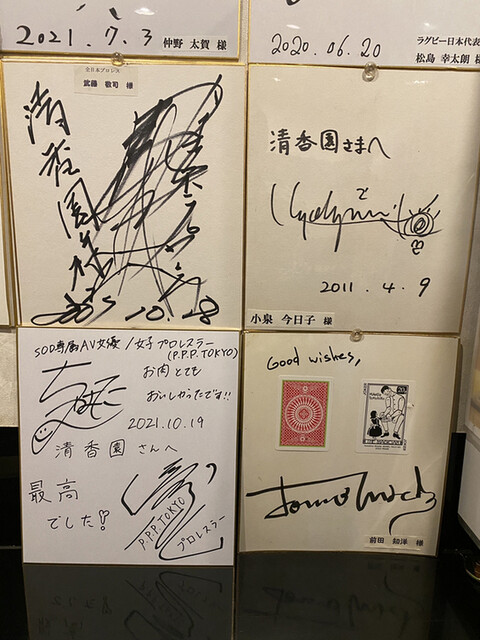 2021.7.3
仲野 太賀 様
2020.06.20
ラグビー日本代表
松島 幸太朗 様
全日本プロレス
武藤 敬司 様
清香園様
2005 10.28
清香園さまへ
2011.4.9
小泉 今日子 様
SOD専属AV女優/女子プロレスラー
(P.P.P.TOKYO)
お肉とても
おいしかったです!!
2021.10.19
清香園さんへ
最高
でした!
P.P.P.TOKYO
プロレスラー
Good wishes,
前田 知洋 様